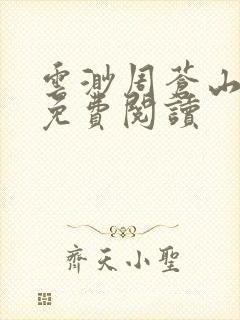 雲渺周蒼山
免費閱讀
齊天小聖